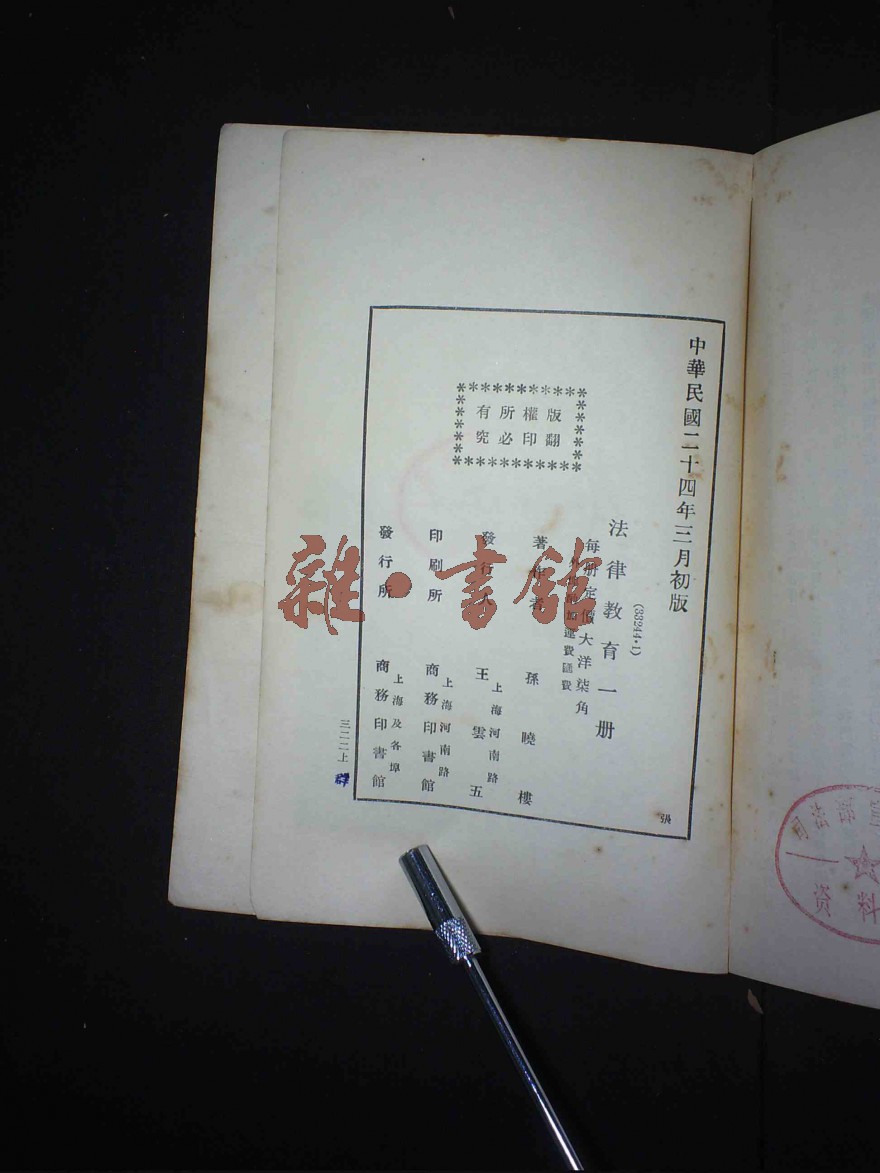 中華民國二十四年三月初版
(33244·1)
法律教育一册
每册定價大洋柒角
加運費匯費
著作者
孫曉樓
發行人
王雲五
上海河南路
印刷所
商務印書館
上海河南路
發行所
商務印書館
上海及各埠
版權所有
翻印必究
三二二上
張
雜·書館
资料